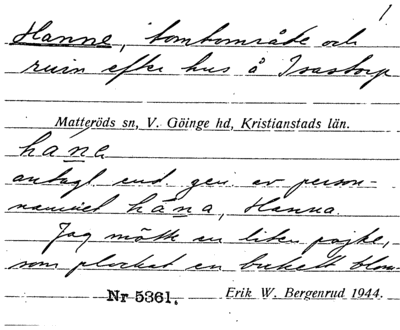 1
Hanne, tomtområde och
ruin efter hus å Ivastorp
Matteröds sn, V. Göinge hd, Kristianstads län.
hana
antagl. end. gen. av person-
namnet hana, Hanna.
Jag mötte en liten pojke,
som plockat en bukett blom-
Nr 5361. Erik W. Bergenrud 1944.